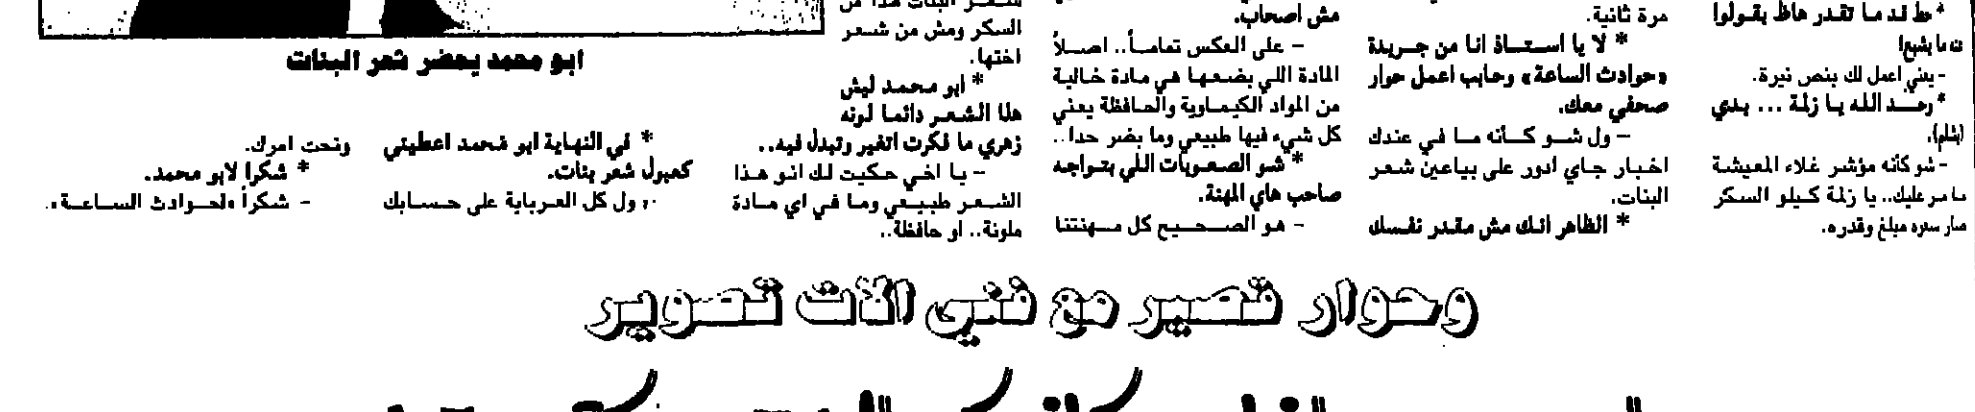 * حط قد ما تقدر هاظ بقولوا
ت ما يشبع!
- يعني اعمل لك بنص نيرة.
* وحد الله يا زلمة ... بدي
- شو كأنه مؤشر غلاء المعيشة
ما مر عليك.. يا زلمة كيلو السكر
صار سعره مبلغ وقدره.
مرة ثانية.
* لا يا استاذ انا من جريدة
«حوادث الساعة» وحابب اعمل حوار
صحفي معك.
- ول شو كأنه ما في عندك
اخبار جاي ادور على بياعين شعر
البنات.
* الظاهر انك مش مقدر نفسك
مش اصحاب.
- على العكس تماماً.. اصلاً
المادة اللي بضعها هي مادة خالية
من المواد الكيماوية والحافظة يعني
كل شيء فيها طبيعي وما بضر حدا..
* شو الصعوبات اللي بتواجه
صاحب هاي المهنة.
- هو الصحيح كل مهنتنا
شعر البنات هذا من
السكر ومش من شعر
اختها.
* ابو محمد ليش
هذا الشعر دائما لونه
زهري ما فكرت اتغير وتبدل فيه..
- يا اخي حكيت لك انو هذا
الشعر طبيعي وما في اي مادة
ملونة.. او حافظة..
ابو محمد يحضر شعر البنات
* في النهاية ابو محمد اعطيني
كمبول شعر بنات.
ول كل العرباية على حسابك
وتحت امرك.
* شكرا لابو محمد.
- شكراً «لحوادث الساعة».
وحوار قصير مع فني الات تصوير